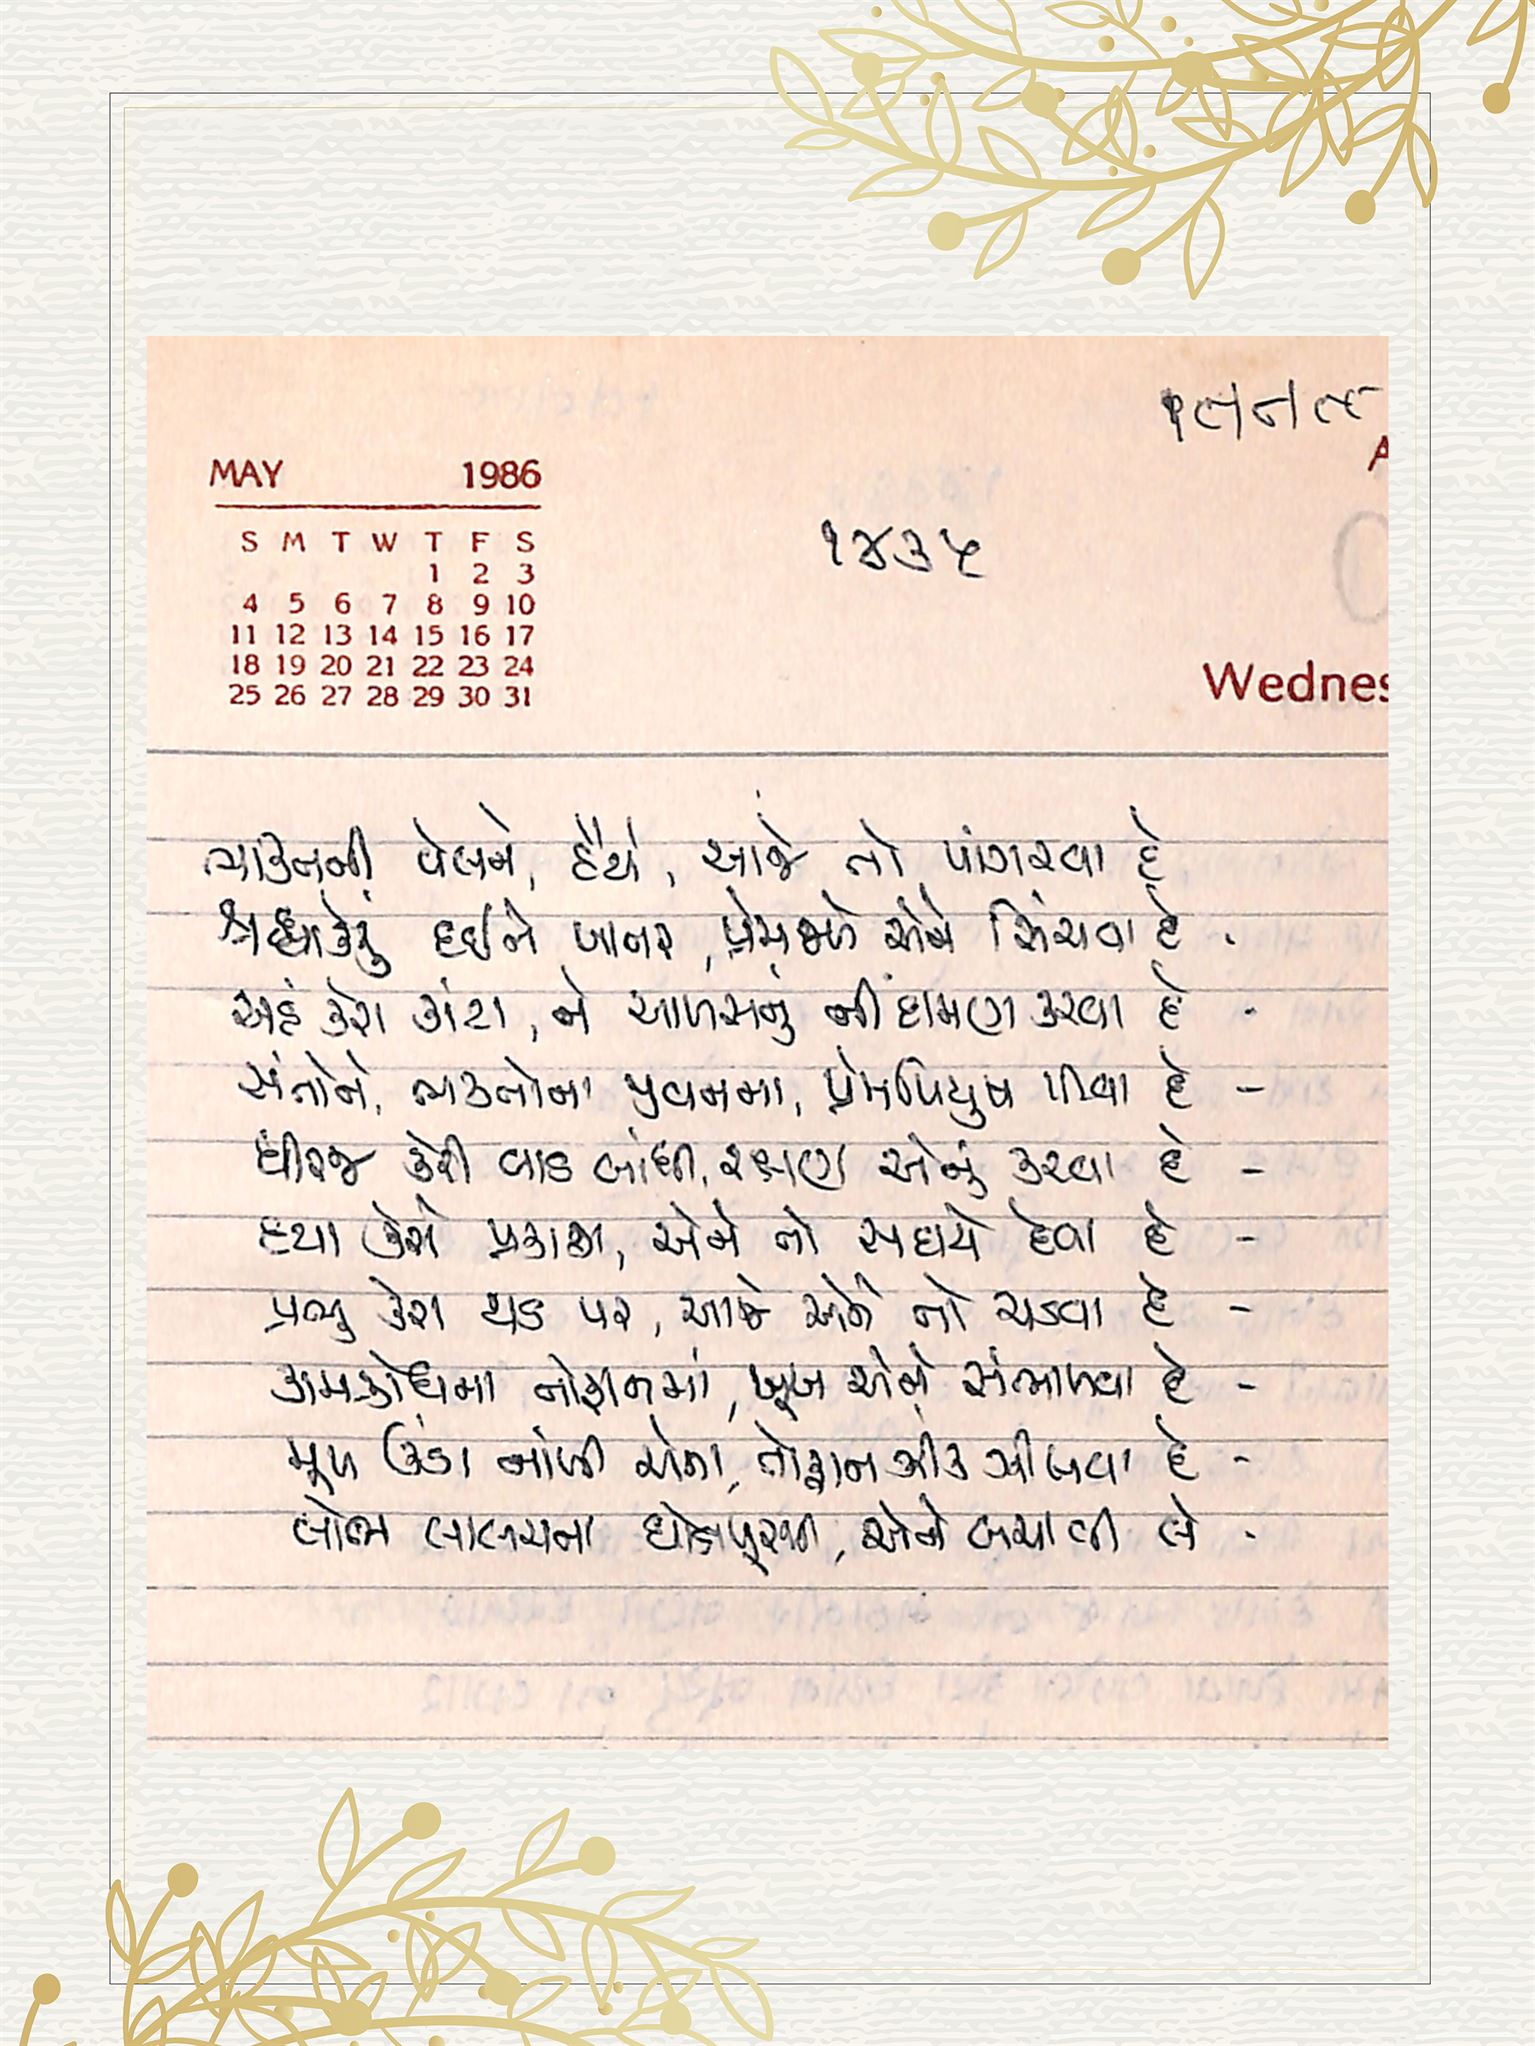 MAY 1986
S M T W T F S
1 2 3
4 5 6 7 8 9 10
11 12 13 14 15 16 17
18 19 20 21 22 23 24
25 26 27 28 29 30 31
૧૪૩૫
Wednes
ભક્તિની વેલને, હૈયે, આજે તો પાંગરવા દે
શ્રદ્ધાકેરું દઈને ખાતર, પ્રેમજળે એને સિંચવા દે .
અહં કેરા કાંટા, ને આળસનું નીંદામણ કરવા દે .
સંતોને, ભક્તોના પવનમા, પ્રેમપિયુષ પીવા દે -
ધીરજ કેરી વાડ બાંધી, રક્ષણ એનું કરવા દે -
દયા કેરો પ્રકાશ, એને તો સદાયે દેવા દે -
પ્રભુ કેરા થડ પર, આજે એને તો ચડવા દે -
કામક્રોધના તોફાનમાં, ખૂબ એને સંભાળવા દે -
મૂળ ઊંડા નાંખી એના, તોફાન ઝીક ઝીલવા દે -
લોભ લાલચના ઘોડાપૂરથી, એને બચાવી લે .